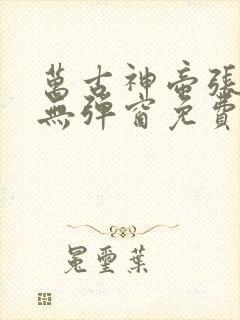 萬古神帝張
無彈窗免費
冕璽葉